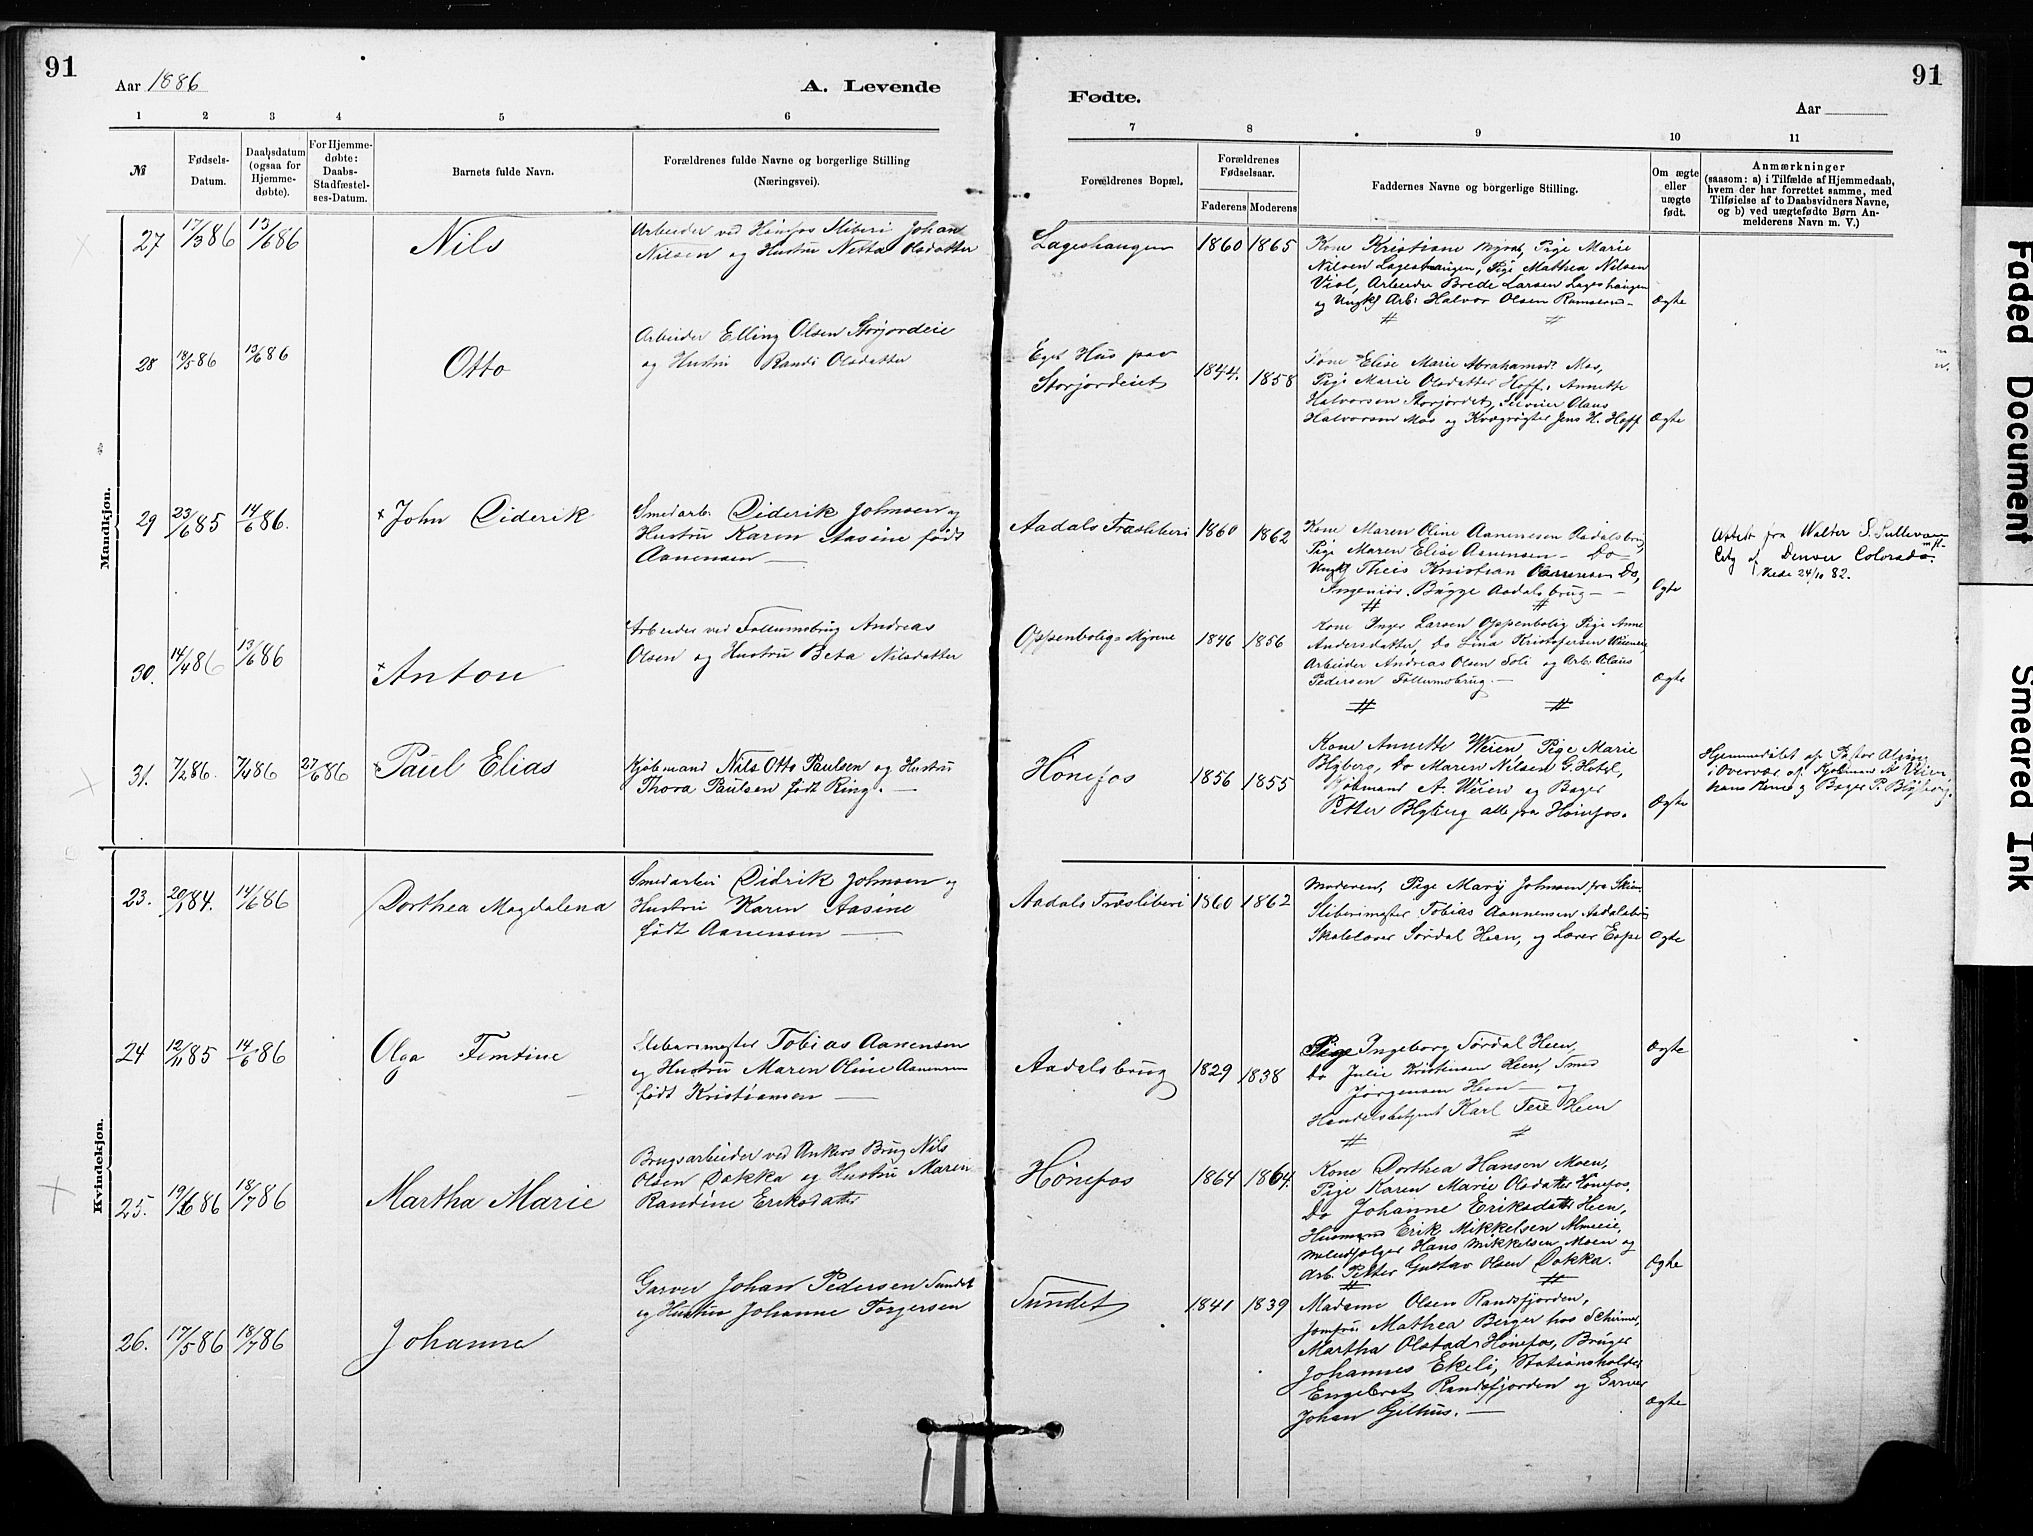 91
Aar 1886
A. Levende
1 2 3 4 5 6
№
Fødsels-
Datum.
Daabsdatum
(ogsaa for
Hjemme-
døbte).
For Hjemme-
døbte:
Daabs-
Stadfæstel-
ses-Datum.
Barnets fulde Navn.
Forældrenes fulde Navne og borgerlige Stilling
(Næringsvei).
Mandkjøn.
27 17/3 86 13/6 86 Nils
Arbeider ved Hønefos Sliberi Johan
Nilsen og Hustru Netta Olsdatter
28 18/5 86 13/6 86 Otto
Arbeider Elling Olsen Storjordeie
og Hustru Randi Olsdatter
29 23/6 85 14/6 86. × John Diderik
Smedarb. Diderik Johnsen og
Hustru Karen Aasine født
Aanensen —
30. 14/4 86 13/6 86 × Anton
Arbeider ved Follumsbrug Andreas
Olsen og Hustru Beta Nilsdatter
31. 7/2 86. 7/4 86 27/6 86 × Paul Elias
Kjøbmand Nils Otto Paulsen og Hustru
Thora Paulsen født Ring. —
Kvindekjøn.
23. 20/1 84. 14/6 86 Dorthea Magdalena
Smedarbei Didrik Johnsen og
Hustru Karen Aasine
født Aanensen —
24 12/11 85 14/6 86 Olga Femtine
Slibermester Tobias Aanensen
og Hustru Maren Oline Aanensen
født Kristiansen —
25. 19/6 86 18/7 86 Martha Marie
Brugsarbeider ved Ankers Brug Nils
Olsen Dokka og Hustru Maren
Randine Eriksdatter
26. 17/5 86 18/7 86 Johanne
Garver Johan Pedersen Sundet
og Hustru Johanne Torgersen
91
Fødte.
Aar
7 8 9 10 11
Forældrenes Bopæl.
Forældrenes
Fødselsaar.
Faderens Moderens
Faddernes Navne og borgerlige Stilling.
Om ægte
eller
uægte
født.
Anmærkninger
(saasom: a) i Tilfælde af Hjemmedaab,
hvem der har forrettet samme, med
Tilføielse af to Daabsvidners Navne,
og b) ved uægtefødte Børn An-
melderens Navn m. V.)
Lageshaugen 1860 1865
Kone Kristiane Myra, Pige Marie
Nilsen Lageshaugen, Pige Mathea Nilsen
Viol, Arbeider Brede Larsen Lageshaugen
og Ungkf Arb: Halvor Olsen
Ægte
Eget Hus paa
Storjordeiet 1844. 1858
Kone Elise Marie Abrahamsdt. Mos,
Pige Marie Olsdatter Hoff, Annette
Halvorsen Storjordet, Olaus
Halvorsen Mos og Kvægrøgter Jens H. Hoff
Ægte
Aadals Træsliberi 1860 1862
Kone Maren Oline Aannensen Aadalsbrug
Pige Maren Elise Aanensen — Do
Ungkf Theis Kristian Aannensen Do,
Ingeniør Bügge Aadalsbrug —
Ægte
Attest fra Walter S. Sullivan
City of Denver Colorado.
24/10 82.
Oppenbolig Myrene 1846 1856
Kone Inger Larsen Oppenbolig Pige Anne
Andersdatter, Do Lina Kristofersen
Arbeider Andreas Olsen Soli og Arb: Olaus
Pedersen Follumsbrug —
Ægte
Hønefos 1856 1855
Kone Annette Weien, Pige Marie
Blyberg, Do Maren Nilsen G. Hotel,
Kjøbmand A. Weien og Bager
Petter Blyberg alle fra Hønefos.
Ægte
Hjemmedøbt af Pastor
i Overvær af Kjøbmand A. Veien,
hans Kone og Bager P. Blyberg.
Aadals Træsliberi 1860 1862
Moderen, Pige Mary Johnsen fra Skien
Sliberimester Tobias Aannensen Aadalsbrug
Skolelærer Sørdal Heen, og Lærer Espe
Ægte
Aadalsbrug 1829 1838
Pige Ingeborg Sørdal Heen,
Do Julie Kristinsen Heen, Smed
Jørgensen Heen — og
Handelsbetjent Karl Teie Heen
Ægte
Hønefos 1864 1864.
Kone Dorthea Hansen Moen,
Pige Karen Marie Olsdatter Hønefos,
Do Johanne Eriksdatter Heen,
Husmand Erik Mikkelsen Almeie,
Meludsælger Hans Mikkelsen Moen og
Arb. Petter Gustav Olsen Dokka.
Ægte
Sundet 1841 1839
Madame Olsen Randsfjorden,
Jomfru Mathea Berger hos Schirmer,
Martha Olstad Hønefos, Bruger
Johannes Ekeli, Stationsholder
Engebret Randsfjorden og Garver
Johan Gjelhus. —
Ægte
Faded Document
Smeared Ink